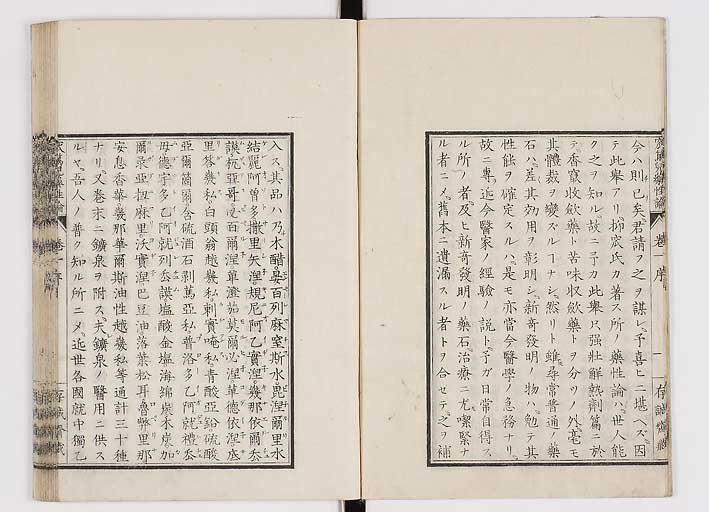 今ハ則已矣君請フ之ヲ謀レ予喜ヒニ堪ヘス因
テ此擧アリ抑窊氏カ著ス所ノ藥性論ハ世人能
ク之ヲ知ル故ニ予カ此擧只强壯解熱劑篇ニ於
テ香竄收歛藥ト苦味收歛藥トヲ分ツノ外毫モ
其體裁ヲ變スルヿナシ然リト雖尋常普通ノ藥
石ハ差其効用ヲ彰明シ新奇發明ノ物ハ勉テ其
性能ヲ確定スルハ是モ亦當今醫學ノ急務ナリ
故ニ專近今醫家ノ經驗ノ説ト予カ日常自得ス
ル所ノ者及ヒ新奇發明ノ藥石治療ニ尤喫緊ナ
ル者ニメ舊本ニ遺漏スル者トヲ合セテ之ヲ補
卷一序
一
入ス其品ハ乃木醋晏百列麻窒斯水毘涅爾里水
結麗阿曾多撒里失涅規尼阿乙實涅幾那依爾叅
謨栃亞哥
百爾涅單澄茄莫爾必涅華德依涅
里荅幾私白頭翁越幾私刺實唵私青酸亞鉛硫酸
亞爾
爾含硫酒石剥篤亞私普洛多乙阿就禮叅
母德宇多乙阿就列叅謨塩酸金塩海綿炭木炭加
爾
亞抇麻里沃實涅巴豆油落葉松耳魯弊里那
安息香華幾那華爾斯油性越幾私等通計三十種
ナリ又卷末ニ鑛泉ヲ附ス夫鑛泉ノ醫用ニ供ス
ルヤ吾人ノ普ク知ル所ニメ近世各國就中獨乙